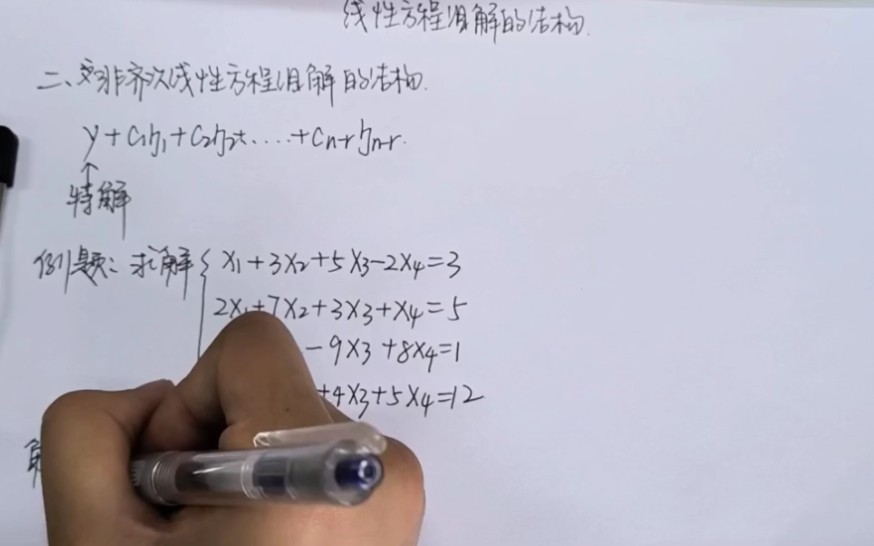 线性方程组解的结构.
二、对非齐次线性方程组解的结构.
y+C₁η₁+C₂η₂+....+Cn-rηn-r.
↑
特解
例题：求解{ x₁+3x₂+5x₃-2x₄=3
2x₁+7x₂+3x₃+x₄=5
-9x₃+8x₄=1
+4x₃+5x₄=12